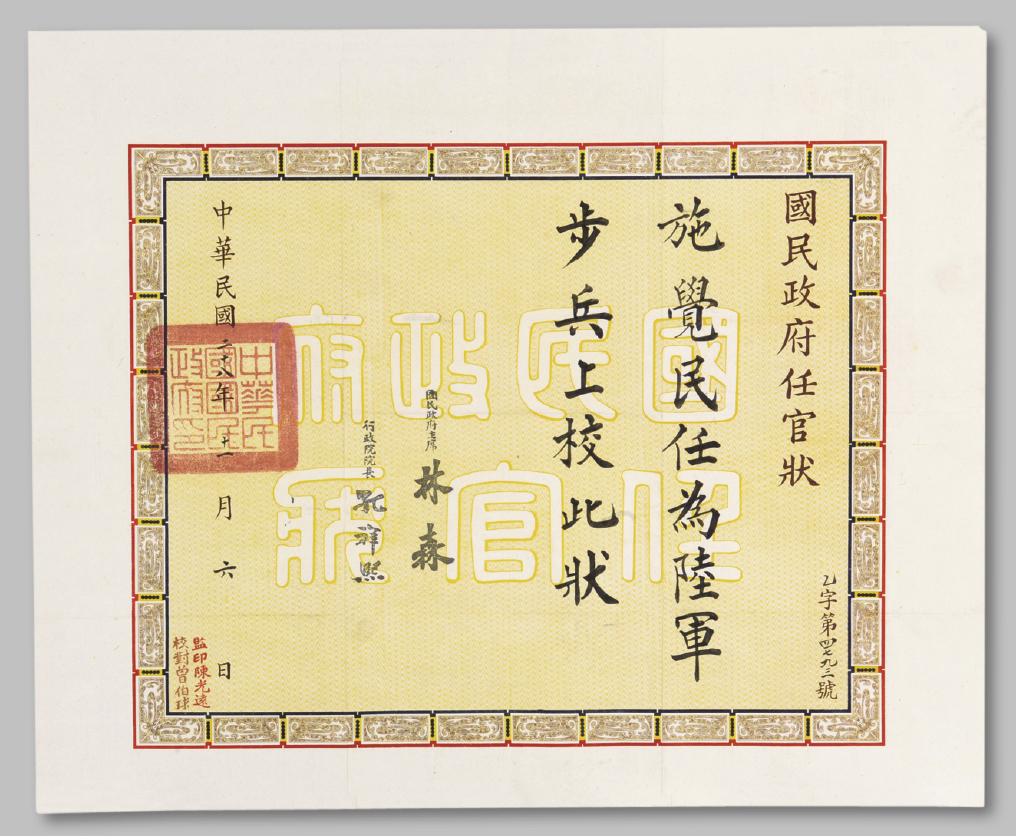 國民政府任官狀
乙字第四七九三號
施覺民任為陸軍
步兵上校此狀
國民政府主席 林森
行政院院長 孔祥熙
中華民國二十八年十一月六日
監印陳光遠
校對曾伯球
中華民
國國民
政府印
國民政府
任官狀